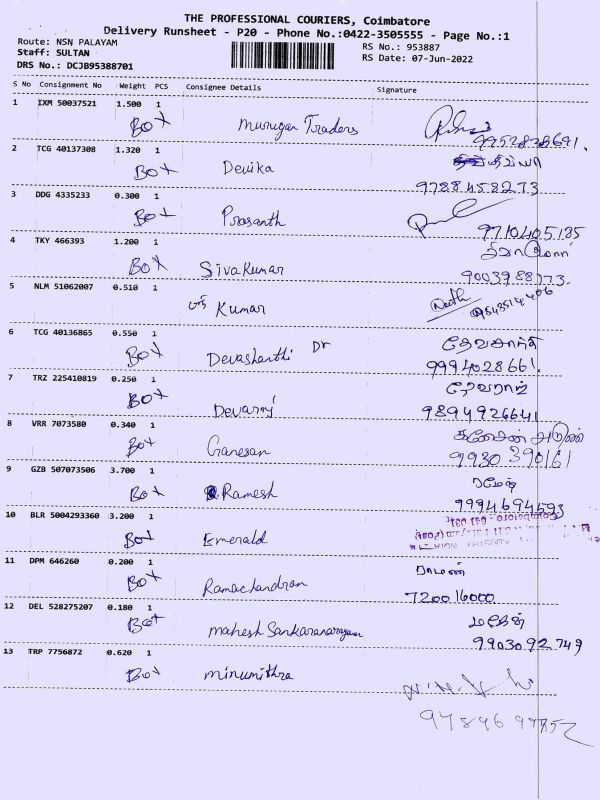 THE PROFESSIONAL COURIERS, Coimbatore
Delivery Runsheet - P20 - Phone No.:0422-3505555 - Page No.:1
Route: NSN PALAYAM RS No.: 953887
Staff: SULTAN RS Date: 07-Jun-2022
DRS No.: DCJB95388701
S No Consignment No Weight PCS Consignee Details Signature
1 IXM 50037521 1.500 1
Box Murugan Traders
2 TCG 40137308 1.320 1
Box Devika 9788458273
3 DDG 4335233 0.300 1
Box Prasanth 9710405185
4 TKY 466393 1.200 1
Box Sivakumar 9003988773.
5 NLM 51062007 0.510 1
Kumar
6 TCG 40136865 0.550 1 தேவசாந்தி
Box Devashanthi Dr 9994028661.
7 TRZ 225410819 0.250 1 தேவராஜ்
Box Devaraj 9894926641
8 VRR 7073580 0.340 1
Box Ganesan 9930390161
9 GZB 507073506 3.700 1 ரமேஷ்
Box Ramesh 9994694593
10 BLR 5004293360 3.200 1
Box Emerald
11 DPM 646260 0.200 1 ராமன்
Box Ramachandran 720016000
12 DEL 528275207 0.180 1 மகேஷ்
Box Mahesh Sankaranarayanan 9903092749
13 TRP 7756872 0.620 1
Box Minumithra